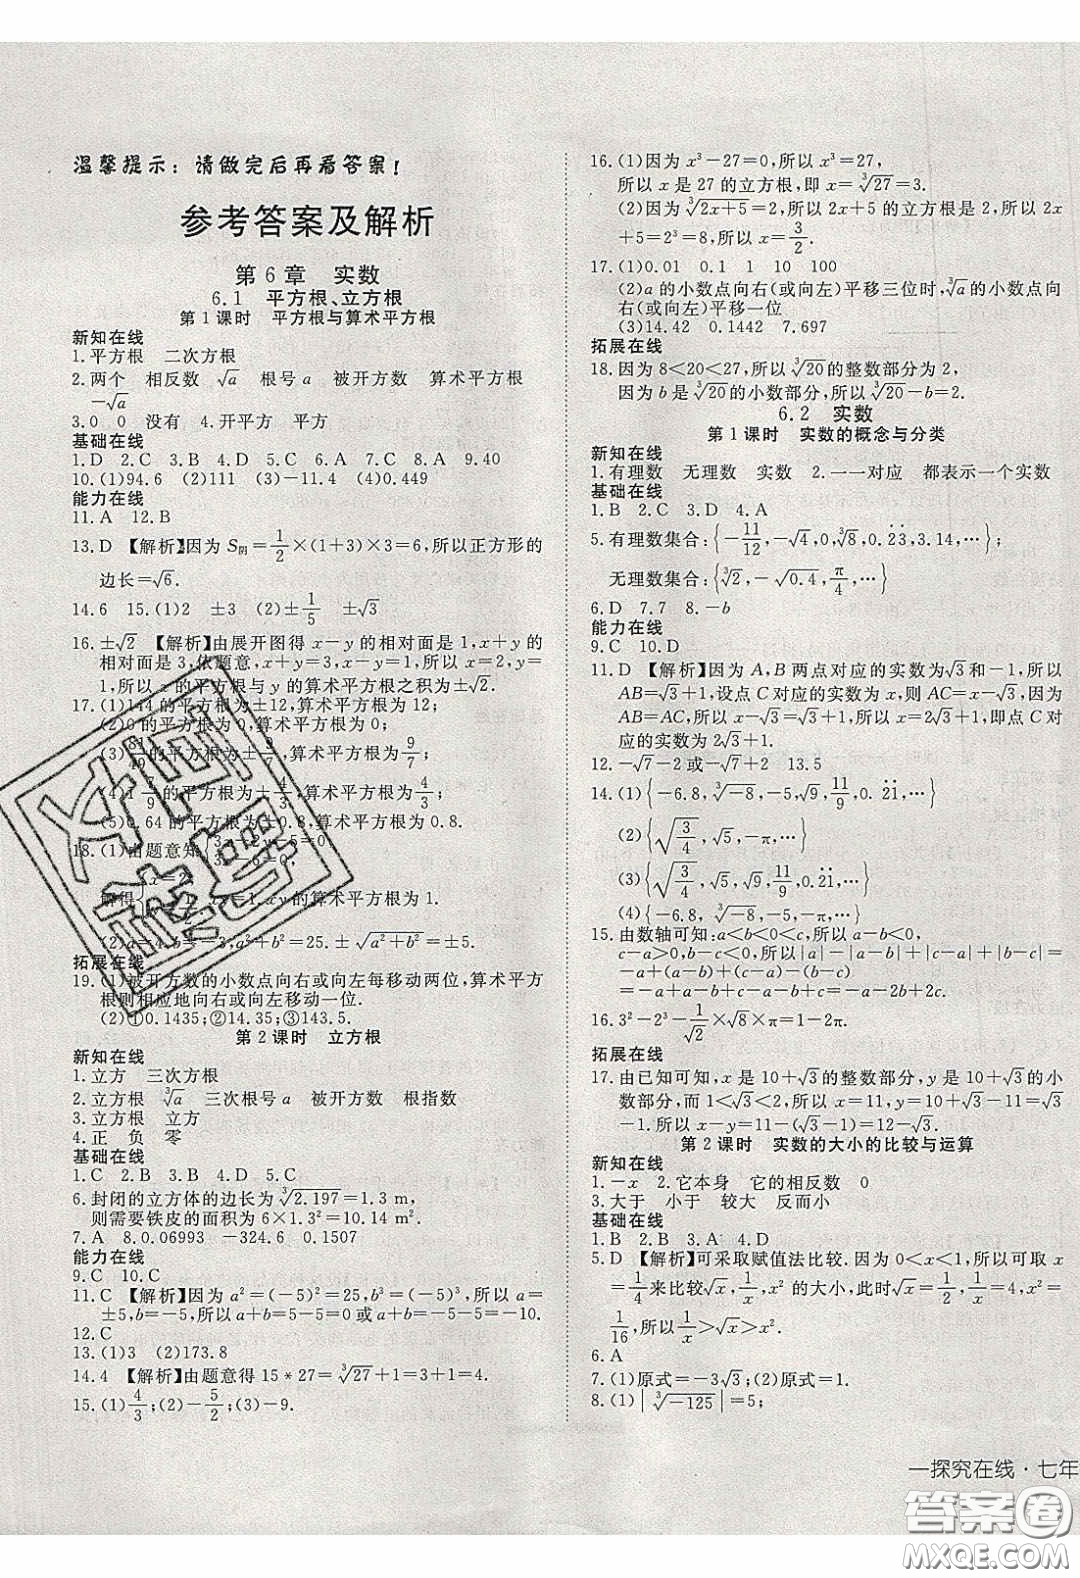 温馨提示：请做完后再看答案！
参考答案及解析
第6章　实数
6.1　平方根、立方根
第1课时　平方根与算术平方根
新知在线
1.平方根　二次方根
2.两个　相反数　√a　根号a　被开方数　算术平方根
−√a
3.0　0　没有　4.开平方　平方
基础在线
1.D　2.C　3.B　4.D　5.B　6.C　7.B　8.A　9.40
10.(1)94.6　(2)211　(3)−14　(4)0.449
能力在线
11.A　12.B
13.D　【解析】因为S阴=1/2×(1+3)×3=6,所以正方形的
边长=√6.
14.6　15.(1)2　±3　(2)±1/5　±√3
16.±√2　【解析】由展开图得x−y的相对面是1,x+y的
相对面是3,依题意,x+y=3,x−y=1,所以x=2,y=1,
所以x的平方根与y的算术平方根之积为±√2.
17.(1)144的平方根为±12,算术平方根为12;
(2)0的平方根为0,算术平方根为0;
(3)81/49的平方根为±9/7,算术平方根为9/7;
(4)1 7/9的平方根为±4/3,算术平方根为4/3;
(5)0.64的平方根为±0.8,算术平方根为0.8.
18.(1)由题意知
解得 y=1. xy的算术平方根为1.
(2)a=4,b=−3,a²+b²=25.±√(a²+b²)=±5.
拓展在线
19.(1)被开方数的小数点向右或向左每移动两位,算术平方
根则相应地向右或向左移动一位.
(2)①0.1435;②14.35;③143.5.
第2课时　立方根
新知在线
1.立方　三次方根
2.立方根　∛a　三次根号a　被开方数　根指数
3.立方根　立方
4.正　负　零
基础在线
1.C　2.B　3.A　4.D　5.C
6.封闭的立方体的边长为∛2.197=1.3 m,
则需要铁皮的面积为6×1.3²=10.14 m².
7.A　8.0.06993　−324.6　0.1507
能力在线
9.C　10.C
11.C　【解析】因为a²=(−5)²=25,b³=(−5)³,所以a=
±5,b=−5,所以a+b=0或a+b=−5−5=−10.
12.C
13.(1)3　(2)173.8
14.4　【解析】由题意得15*27=∛27+1=3+1=4.
15.(1)4/3;(2)−5/2;(3)−9.
16.(1)因为x³−27=0,所以x³=27,
所以x是27的立方根,即x=∛27=3.
(2)因为∛(2x+5)=2,所以2x+5的立方根是2,所以2x
+5=2³=8,所以x=3/2.
17.(1)0.01　0.1　1　10　100
(2)a的小数点向右(或向左)平移三位时,∛a的小数点向
右(或向左)平移一位
(3)14.42　0.1442　7.697
拓展在线
18.因为8<20<27,所以∛20的整数部分为2,
因为b是∛20的小数部分,所以∛20−b=2.
6.2　实数
第1课时　实数的概念与分类
新知在线
1.有理数　无理数　实数　2.一一对应　都表示一个实数
基础在线
1.B　2.C　3.D　4.A
5.有理数集合:{−11/12,−√4,0,∛8,0.2̇3̇,3.14,…};
无理数集合:{∛2,−√0.4,π/4,…}
6.D　7.7　8.−b
能力在线
9.C　10.D
11.D　【解析】因为A,B两点对应的实数为√3和−1,所以
AB=√3+1,设点C对应的实数为x,则AC=x−√3,因为
AB=AC,所以x−√3=√3+1,所以x=2√3+1,即点C对
应的实数为2√3+1.
12.−√7−2或−√7+2　13.5
14.(1){−6.8,∛−8,−5,√9,11/9,0.2̇1̇,…}
(2){√(3/4),−√5,−π,…}
(3){√(3/4),√5,√9,11/9,0.2̇1̇,…}
(4){−6.8,∛−8,−5,−π,…}
15.由数轴可知:a<b<0<c,所以a−b<0,
c−a>0,b−c<0,所以|a|−|a−b|+|c−a|+|b−c|
=−a+a−b+c−a+c−b=−a−2b+2c.
16.3²−2³−1/√2×√8×π=1−2π.
拓展在线
17.由已知可知,x是10+√3的整数部分,y是10+√3的小
数部分,而1<√3<2,所以x=11,y=10+√3−11=√3
−1.所以x−y=11−(√3−1)=12−√3.
第2课时　实数的大小的比较与运算
新知在线
1.−x　2.它本身　它的相反数　0
3.大于　小于　较大　反而小
基础在线
1.B　2.B　3.A　4.D
5.D　【解析】可采取赋值法比较.因为0<x<1,所以可令x=
1/4来比较√x,1/x,x²的大小,此时√x=1/2,1/x=4,x²=
1/16,所以1/x>√x>x².
6.A
7.(1)原式=−3√3;(2)原式=1.
8.(1)|∛−125|=5;
一探究在线·七年
答案卷
MXQE.COM